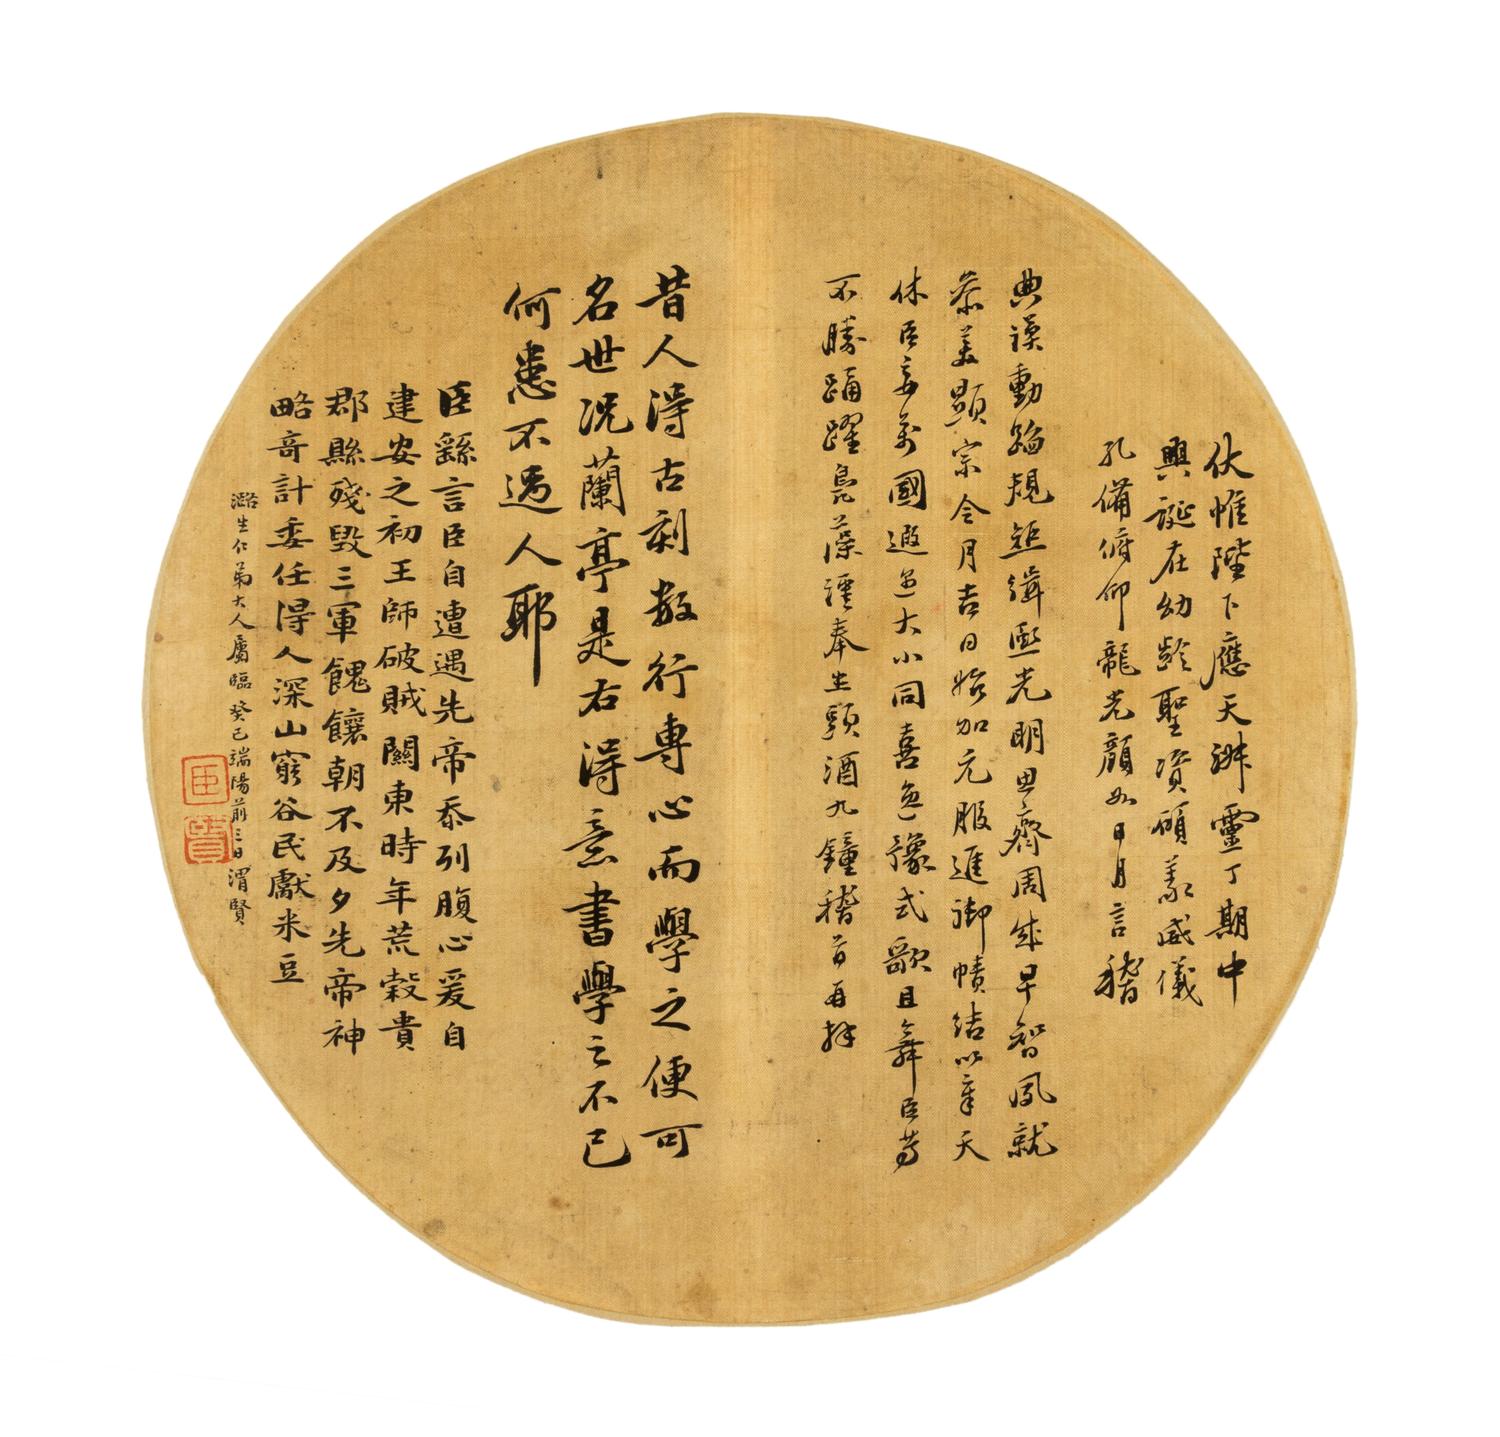 伏惟陛下應天淋靈丁期中
興誕在幼齡聖資碩羕威儀
孔備俯仰龍光顏如日月言稽
典謨動蹈規矩緝熙光明思齊周成早智夙就
恭美顯宗令月吉日始加元服進御幘結以章天
休臣妾萬國遐邇大小同喜逸豫式歌且舞臣等
不勝踊躍鳧藻謹奉生頭酒九鐘稽首再拜
昔人得古刻數行專心而學之便可
名世況蘭亭是右得意書學之不已
何患不過人耶
臣繇言臣自遭遇先帝忝列腹心爰自
建安之初王師破賊關東時年荒穀貴
郡縣殘毀三軍餽饟朝不及夕先帝神
略奇計委任得人深山窮谷民獻米豆
潞生仁弟大人屬臨 癸巳端陽前三日渭賢